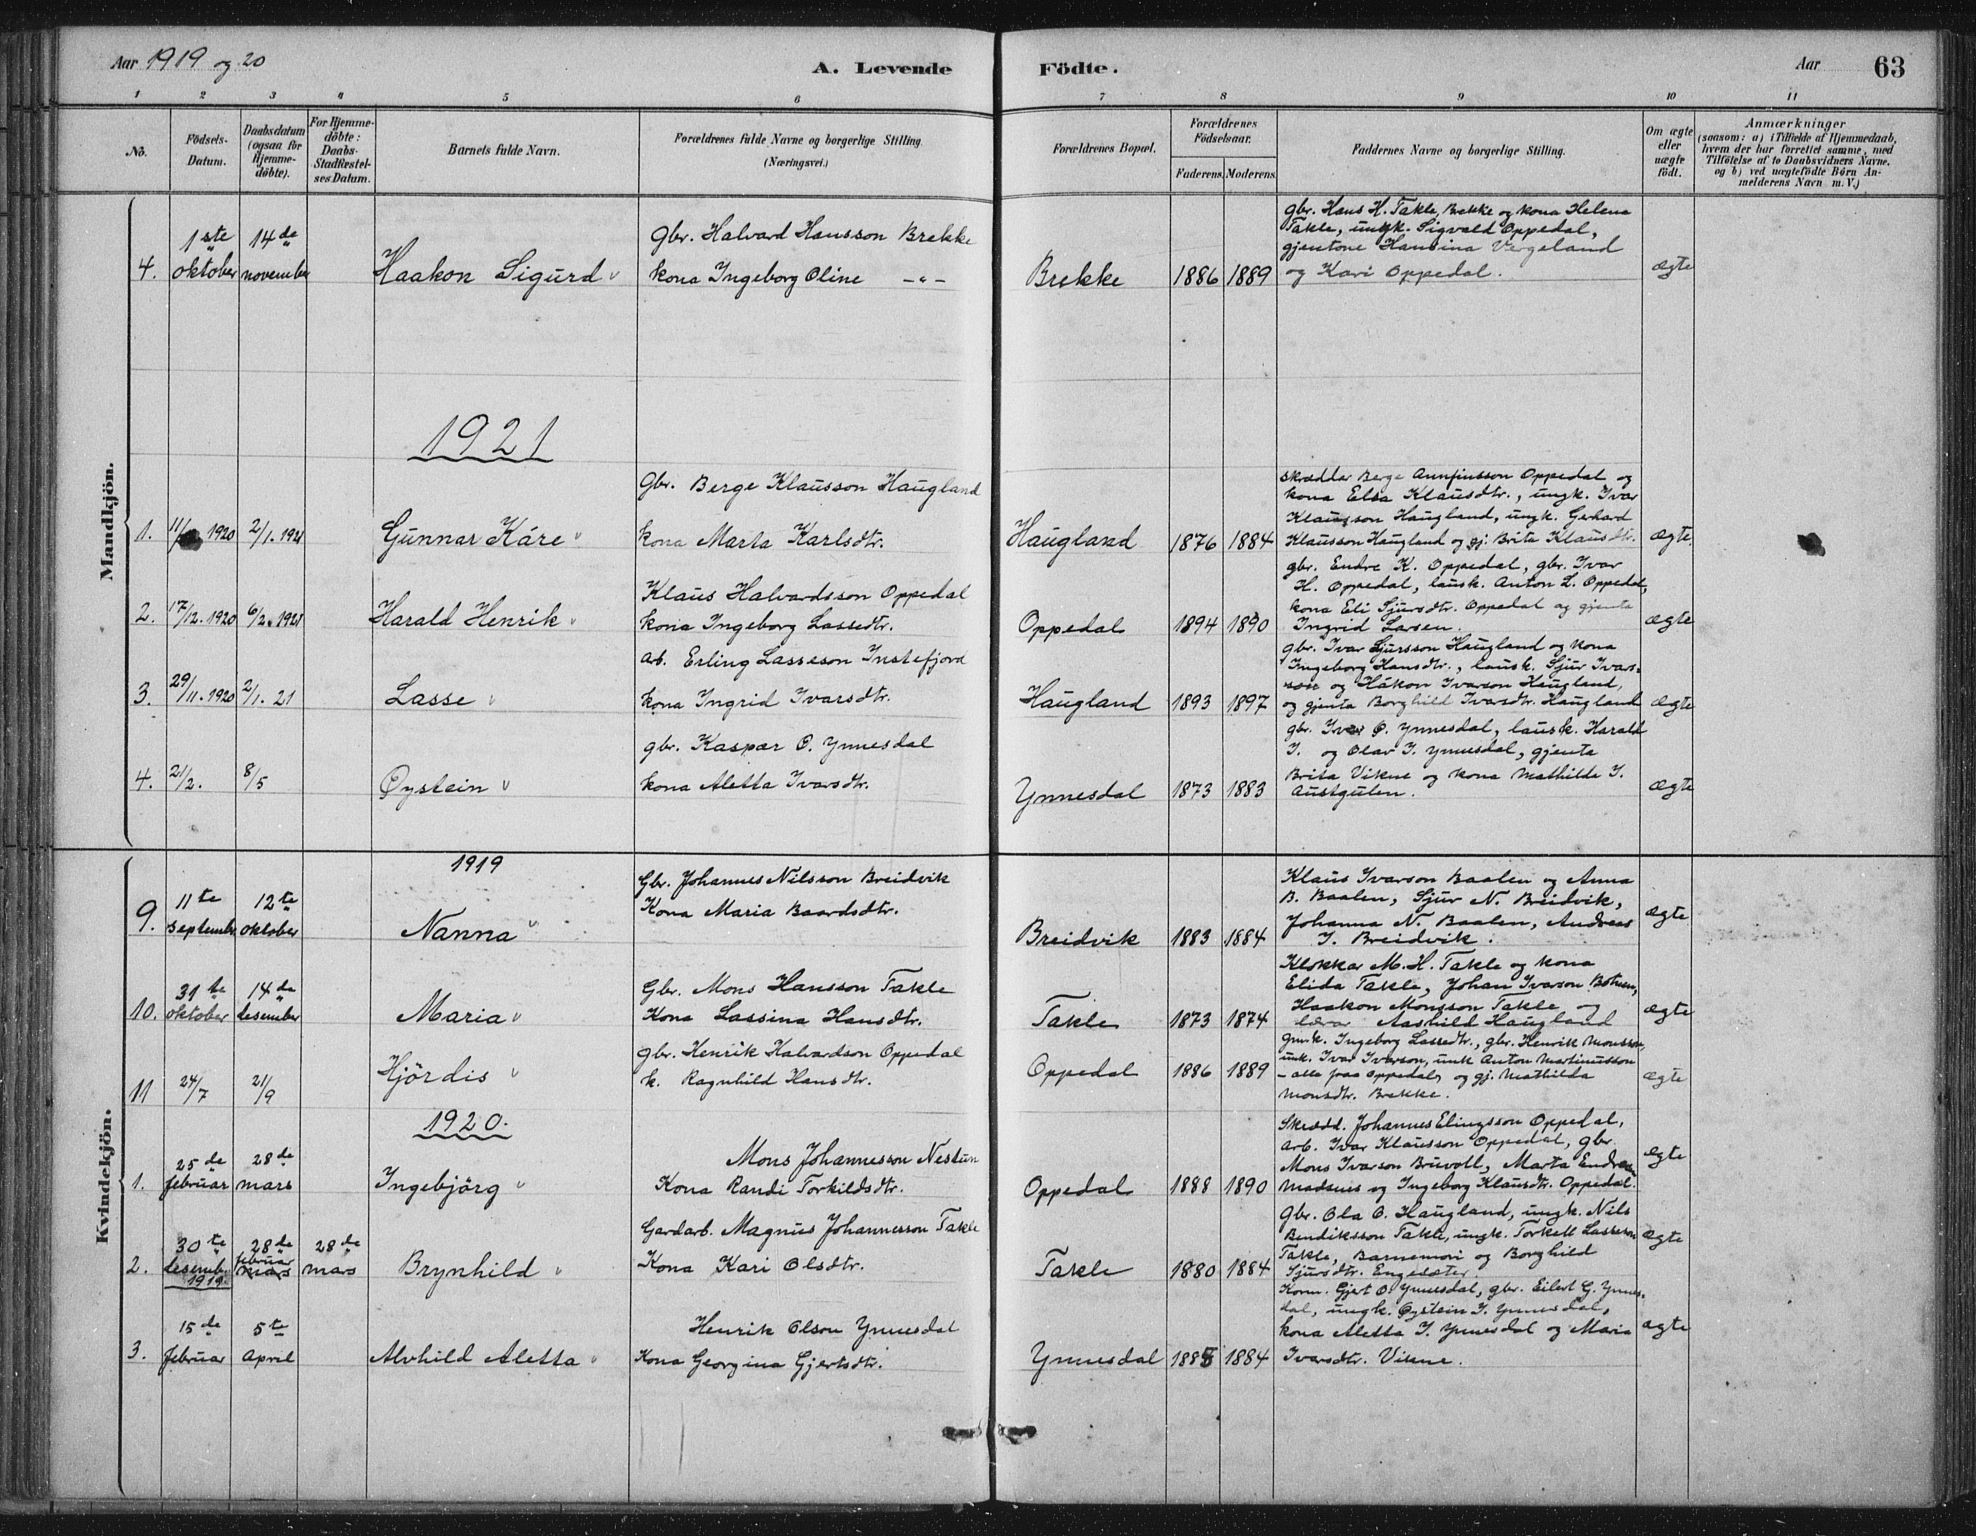 Aar 1919 og 20
A. Levende Födte.
Aar
63
1 2 3 4 5 6 7 8 9 10 11
No.
Födsels-Datum.
Daabsdatum (ogsaa for Hjemme-döbte).
For Hjemme-döbte: Daabs-Stadfæstel-ses Datum.
Barnets fulde Navn.
Forældrenes fulde Navne og borgerlige Stilling. (Næringsvei.)
Forældrenes Bopæl.
Forældrenes Födselsaar.
Faderens. Moderens.
Faddernes Navne og borgerlige Stilling.
Om ægte eller uægte födt.
Anmærkninger
(saasom: a) i Tilfælde af Hjemmedaab, hvem der har forrettet samme, med Tilföielse af to Daabsvidners Navne. og b) ved uægtefödte Börn An-melderens Navn m. V.)
Mandkjön.
4. 1ste oktober 14de november Haakon Sigurd
gbr. Halvard Hansson Brekke
kona Ingeborg Oline -"-
Brekke 1886 1889
gbr. Hans H. Takle, Brekke og kona Helena
Takle, ungk. Sigvald Oppedal,
gjentone Hansina Vergeland
og Kari Oppedal.
ægte
1921
1. 11/ 1920 2/1. 1921 Gunnar Kåre
gbr. Berge Klausson Haugland
kona Marta Karlsdtr.
Haugland 1876 1884
skræddar Berge Annfinsson Oppedal og
kona Elsa Klausdtr., ungk. Ivar
Klausson Haugland, ungk. Gerhard
Klausson Haugland og gj. Brita Klausdtr.
ægte
2. 17/12. 1920 6/2. 1921 Harald Henrik
Klaus Halvardsson Oppedal
kona Ingeborg Lassedtr.
Oppedal 1894 1890
gbr. Endre K. Oppedal, gbr. Ivar
H. Oppedal, lausk. Anton L. Oppedal,
kona Eli Sjursdtr. Oppedal og gjenta
Ingrid Larsen.
ægte
3. 29/11. 1920 2/1. 21 Lasse
arb. Erling Lasseson Instefjord
kona Ingrid Ivarsdtr.
Haugland 1893 1897
gbr. Ivar Sjursson Haugland og kona
Ingeborg Hansdtr., lausk. Sjur Ivars-
son og Håkon Ivarson Haugland,
og gjenta Borghild Ivarsdtr. Haugland
ægte
4. 21/2. 8/5 Øystein
gbr. Kaspar O. Ynnesdal
kona Aletta Ivarsdtr.
Ynnesdal 1873 1883
gbr. Ivar O. Ynnesdal, lausk. Harald
I. og Olav I. Ynnesdal, gjenta
Brita Vikne og kona Mathilde I.
Austgulen.
ægte
Kvindekjön.
1919
9. 11te september 12te oktober Nanna
Gbr. Johannes Nilsson Breidvik
Kona Maria Baardsdtr.
Breidvik 1883 1884
Klaus Ivarson Baalen og Anna
B. Baalen, Sjur N. Breidvik,
Johanna N. Baalen, Andreas
I. Breidvik.
ægte
10. 31te oktober 14de desember Maria
Gbr. Mons Hansson Takle
Kona Lassina Hansdtr.
Takle 1873 1874
Klokkar M. H. Takle og kona
Elida Takle, Johan Ivarson Botnen,
Haakon Monsson Takle og
lærar Aashild Haugland
ægte
11 24/7 21/9 Hjördis
gbr. Henrik Halvardson Oppedal
k. Ragnhild Hansdtr.
Oppedal 1886 1889
Gmk. Ingeborg Lassedtr., gbr. Henrik Monsson,
unk. Ivar Ivarson, unk Anton Martinusson
- alle paa Oppedal, og gj. Mathilda
Monsdtr. Brekke.
ægte
1920.
1. 25de februar 28de mars Ingebjörg
Mons Johannesson Nestun
Kona Randi Torkildsdtr.
Oppedal 1888 1890
Skrædd. Johannes Elingsson Oppedal,
arb. Ivar Klausson Oppedal, gbr.
Mons Ivarson Bruvoll, Marta
Madsnes og Ingeborg Klausdtr. Oppedal.
ægte
2. 30te desemb. 1919. 28de februar mars 28de mars Brynhild
Gardarb. Magnus Johannesson Takle
Kona Kari Olsdtr.
Takle 1880 1884
Gbr. Ola O. Haugland, ungk. Nils
Bendiksson Takle, ungk. Torkell Lasseson
Takle, Barnemori og Borghild
Sjursdtr. Engesæter.
ægte
3. 15de februar 5te April Alvhild Aletta
Henrik Olson Ynnesdal
Kona Georgina Gjertsdtr.
Ynnesdal 1885 1884
Korm. Gjert O. Ynnesdal, gbr. Eilert G. Ynnes-
dal, ungk. Øystein I. Ynnesdal,
kona Aletta I. Ynnesdal og Maria
Ivarsdtr. Vikne.
ægte